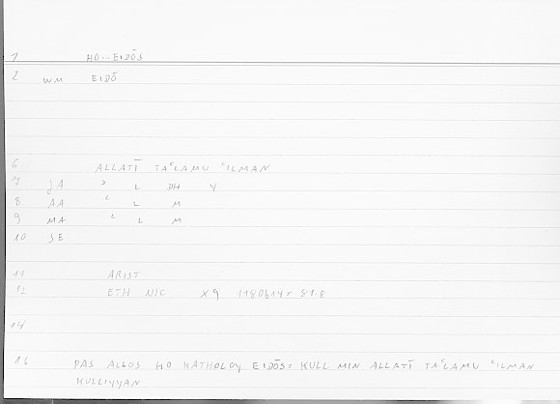 1 HO--EIDŌS
2 WM EIDŌ
6 ALLATĪ TAʿLAMU ʿILMAN
7 JA ʾ L DH Y
8 AA ʿ L M
9 MA ʿ L M
10 SE
11 ARIST
12 ETH NIC X9 1180b14= 81.8
14
16 PAS ALLOS HO KATHOLOY EIDŌS= KULL MIN ALLATĪ TAʿLAMU ʿILMAN
KULLIYYAN